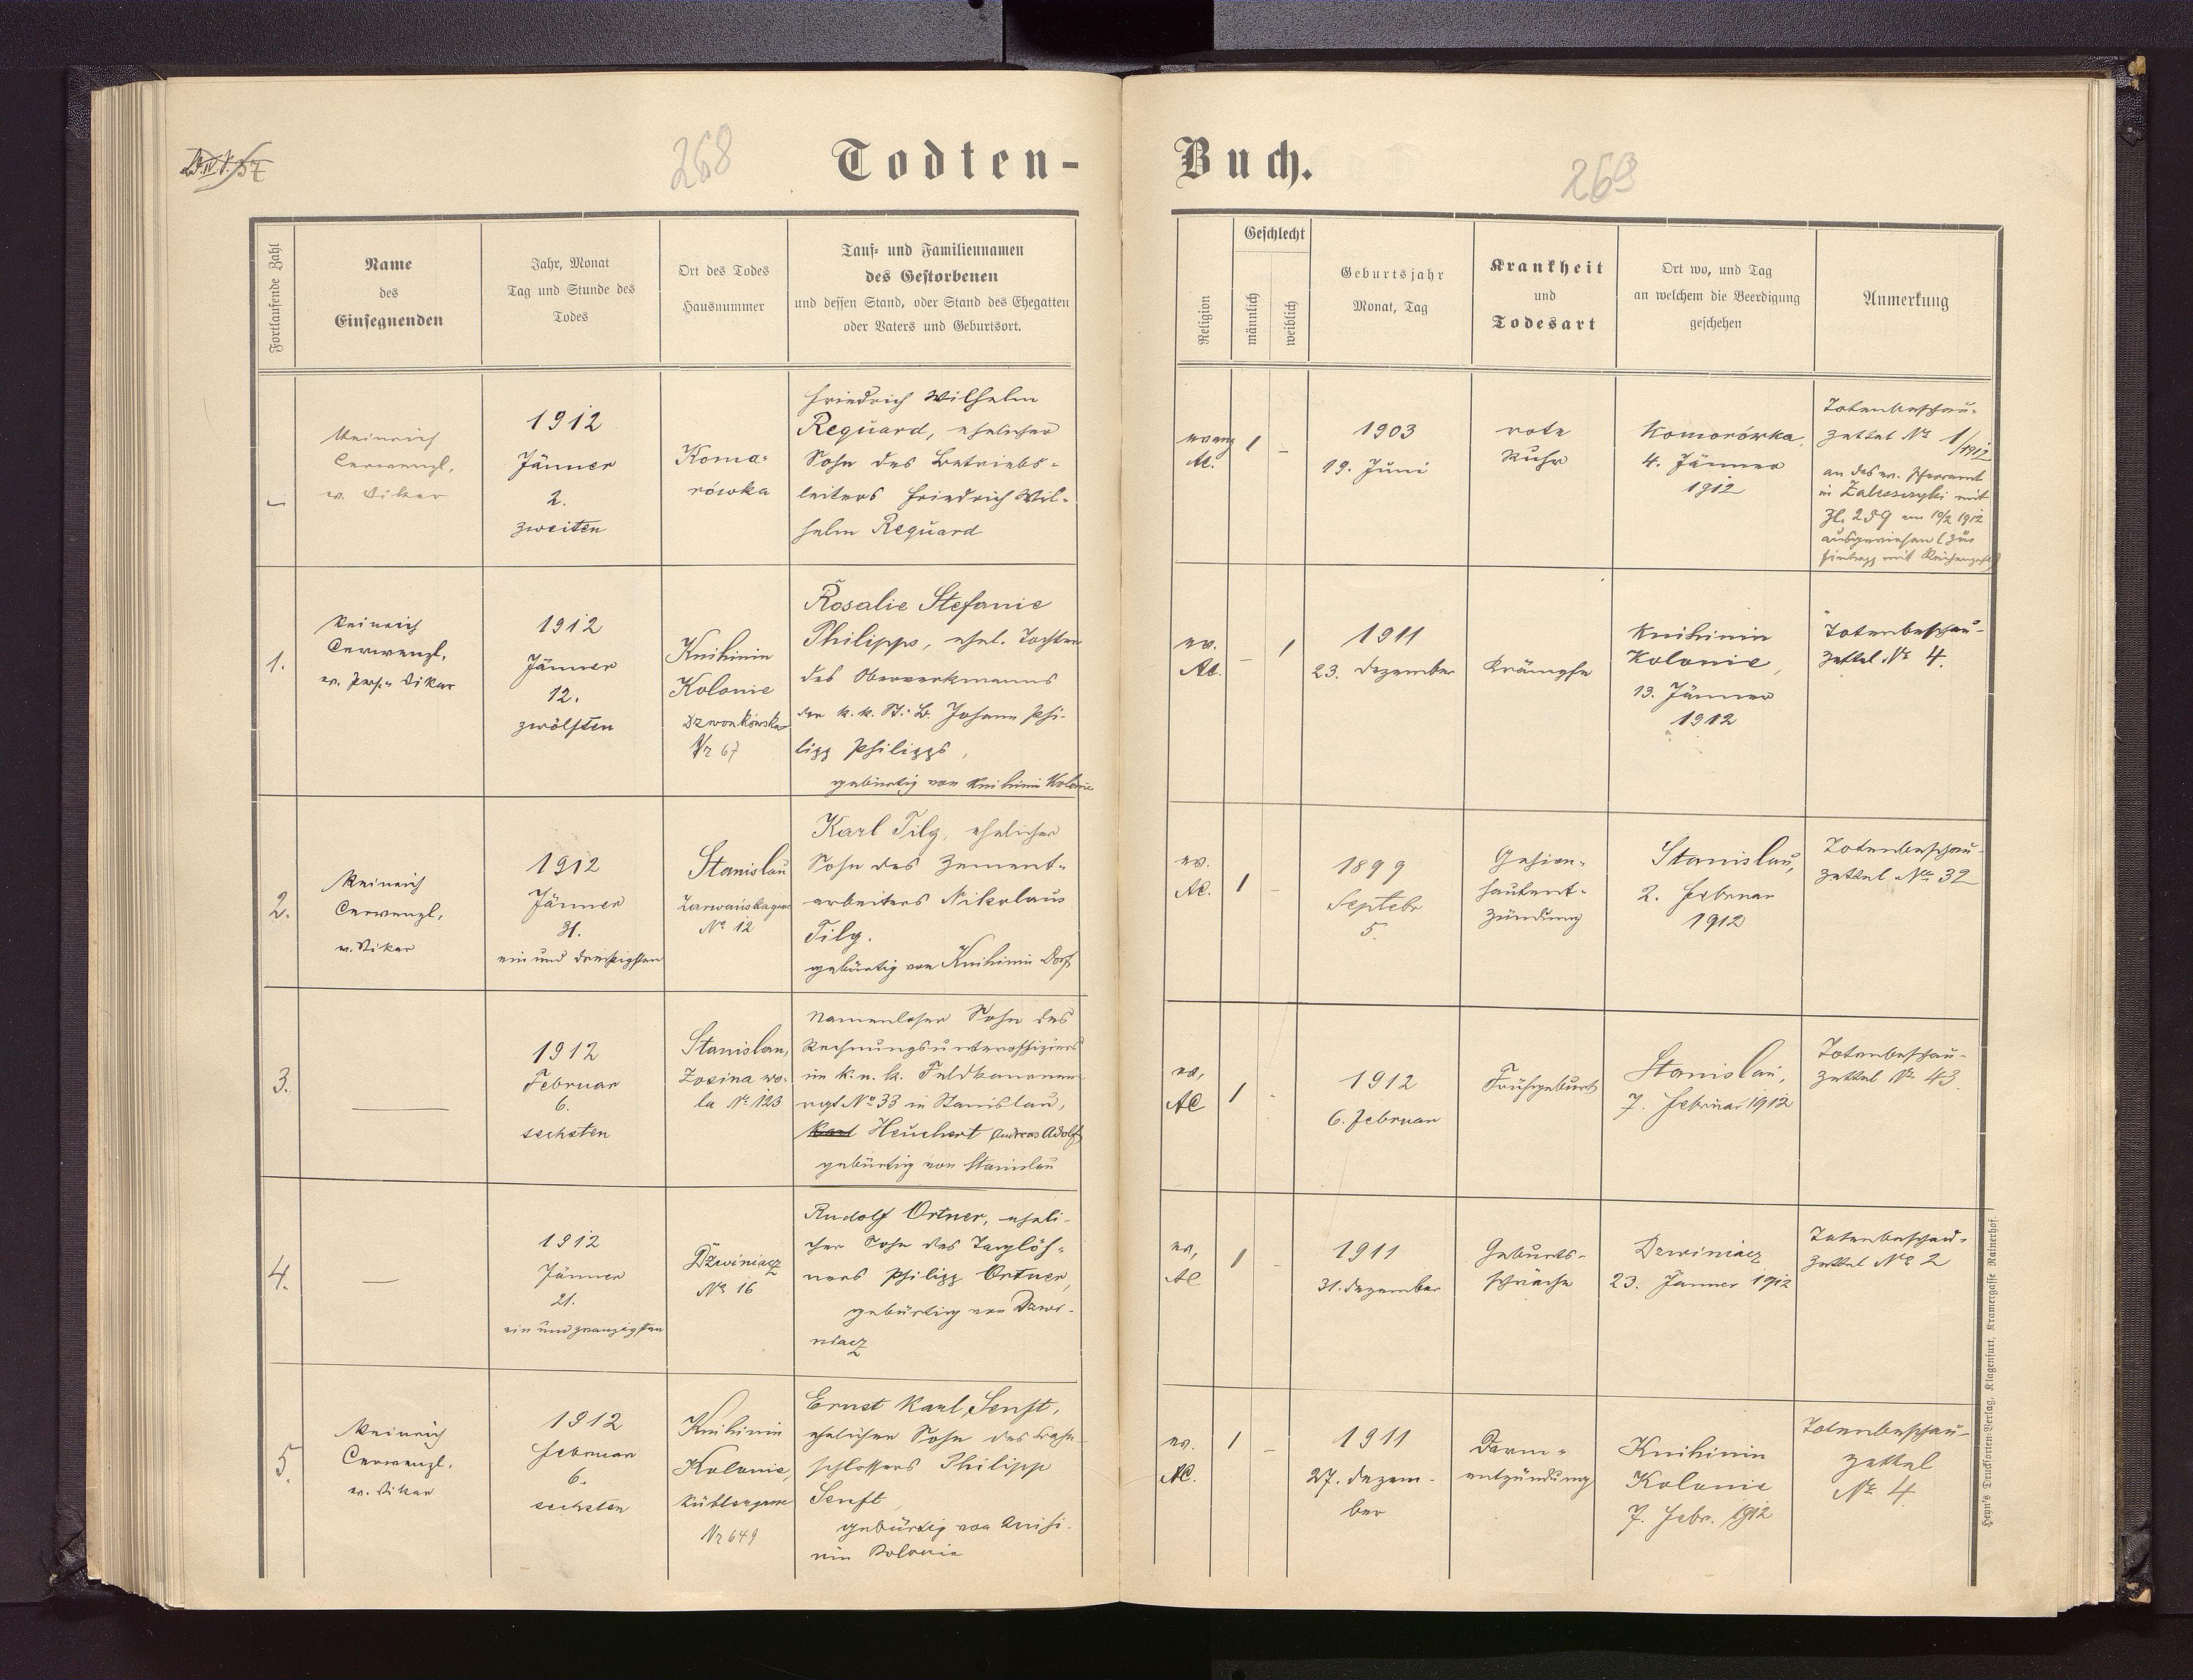 268
Todten-
Buch.
269
Fortlaufende Zahl
Name
des
Einsegnenden
Jahr, Monat
Tag und Stunde des
Todes
Ort des Todes
Hausnummer
Tauf- und Familiennamen
des Gestorbenen
und dessen Stand, oder Stand des Ehegatten
oder Vaters und Geburtsort.
Religion
Geschlecht
männlich
weiblich
Geburtsjahr
Monat, Tag
Krankheit
und
Todesart
Ort wo, und Tag
an welchem die Beerdigung
geschehen
Anmerkung
Heinrich
Cerwenzl,
ev. Vikar
1912
Jänner
2.
zweiten
Koma-
rówka
Friedrich Wilhelm
Requard, ehelicher
Sohn des Betriebs-
leiters Friedrich Wil-
helm Requard
evang
AC.
1
-
1903
19. Juni
rote
Ruhr
Komorówka,
4. Jänner
1912
Totenbeschau-
zettel No 1/1912
an das ev. Pfarramt
in Zaleszczyki mit
Zl. 259 am 10/2 1912
ausgewiesen (zur
1.
Heinrich
Cerwenzl,
ev. Vikar
1912
Jänner
12.
zwölften
Knihinin
Kolonie
Dzwonkówska
Nr 67
Rosalie Stefanie
Philipps, ehel. Tochter
des Oberwerkmanns
der k. k. St. B. Johann Phi-
lipp Philipps,
gebürtig von Knihinin Kolonie
ev.
AC.
-
1
1911
23. Dezember
Krämpfe
Knihinin
Kolonie,
13. Jänner
1912
Totenbeschau-
zettel No 4.
2.
Heinrich
Cerwenzl,
ev. Vikar
1912
Jänner
31.
ein und dreißigsten
Stanislau
No 12
Karl Tilg, ehelicher
Sohn des Zement-
arbeiters Nikolaus
Tilg.
gebürtig von Knihinin Dorf
ev.
AC.
1
-
1899
Septebr
5.
Gehirn-
hautent-
zündung
Stanislau,
2. Februar
1912
Totenbeschau-
zettel No 32
3.
1912
Februar
6.
sechsten
Stanislau,
Zosina wo-
la No 123
Namenloser Sohn des
Rechnungsunteroffiziers
im k. u. k. Feldkanonen-
rgt No 33 in Stanislau,
Karl Heuchert Andreas Adolf
gebürtig von Stanislau
ev,
AC
1
-
1912
6. Februar
Frühgeburt
Stanislau,
7. Februar 1912
Totenbeschau-
zettel No 43.
4.
1912
Jänner
21.
ein und zwanzigsten
Dzwiniacz
No 16
Rudolf Ortner, eheli-
cher Sohn des Taglöh-
ners Philipp Ortner,
gebürtig von Dzwi-
niacz
ev,
AC
1
-
1911
31. Dezember
Geburts-
schwäche
Dzwiniacz
23. Jänner 1912
Totenbeschau-
zettel No 2
5.
Heinrich
Cerwenzl,
ev. Vikar
1912
Februar
6.
sechsten
Knihinin
Kolonie,
Nr 649
Ernst Karl Senft,
ehelicher Sohn des Bahn-
schlossers Philipp
Senft,
gebürtig von Knihi-
nin Kolonie
ev.
AC.
1
-
1911
27. Dezem-
ber
Darm-
entzündung
Knihinin
Kolonie
7. Febr. 1912
Totenbeschau-
zettel
No 4
Heyn's Drucksorten-Verlag, Klagenfurt, Kramergasse Rainerhof.